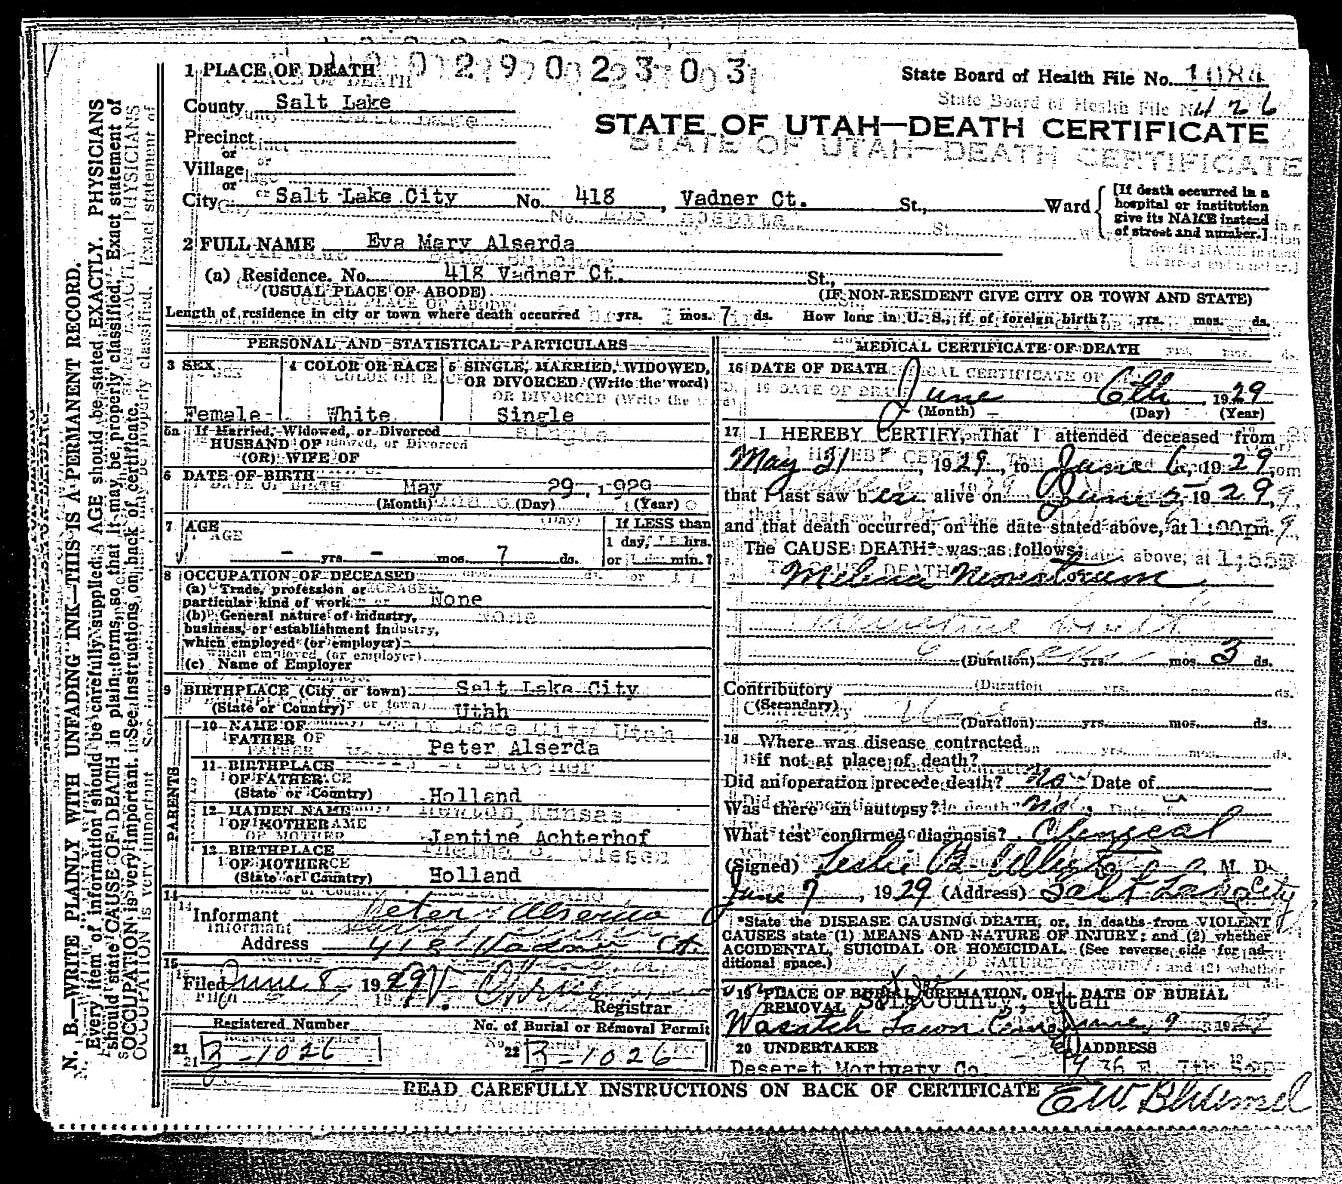 1 PLACE OF DEATH
02902303
State Board of Health File No. 1084
426
County Salt Lake
STATE OF UTAH—DEATH CERTIFICATE
Precinct
or
Village
or
City Salt Lake City No. 418, Vadner Ct. St., Ward
[If death occurred in a hospital or institution give its NAME instead of street and number.]
2 FULL NAME Eva Mary Alserda
(a) Residence. No. 418 Vadner Ct. St.,
(USUAL PLACE OF ABODE)
(IF NON-RESIDENT GIVE CITY OR TOWN AND STATE)
Length of residence in city or town where death occurred yrs. mos. 7 ds. How long in U. S., if of foreign birth? yrs. mos. ds.
PERSONAL AND STATISTICAL PARTICULARS
3 SEX
Female
4 COLOR OR RACE
White
5 SINGLE, MARRIED, WIDOWED, OR DIVORCED (Write the word)
Single
5a If Married, Widowed, or Divorced
HUSBAND OF
(OR) WIFE OF
6 DATE OF BIRTH May 29, 1929
(Month) (Day) (Year)
7 AGE
- yrs. - mos. 7 ds.
If LESS than
1 day, hrs.
or min.?
8 OCCUPATION OF DECEASED
(a) Trade, profession or
particular kind of work None
(b) General nature of industry,
business, or establishment in
which employed (or employer)
(c) Name of Employer
9 BIRTHPLACE (City or town) Salt Lake City
(State or Country) Utah
PARENTS
10 NAME OF
FATHER Peter Alserda
11 BIRTHPLACE
OF FATHER
(State or Country) Holland
12 MAIDEN NAME
OF MOTHER Jentine Achterhof
13 BIRTHPLACE
OF MOTHER
(State or Country) Holland
14
Informant Peter Alserda
Address 418 Vadner Ct.
15
Filed June 8 1929
Registrar
Registered Number
21 B-1026
No. of Burial or Removal Permit
22 B-1026
MEDICAL CERTIFICATE OF DEATH
16 DATE OF DEATH
June 6th, 1929
(Month) (Day) (Year)
17 I HEREBY CERTIFY, That I attended deceased from
May 31, 1929, to June 6, 1929,
that I last saw her alive on June 5, 1929,
and that death occurred, on the date stated above, at 1:00 p.m.
The CAUSE DEATH* was as follows:
Melena Neonatorum
(Duration) yrs. mos. 3 ds.
Contributory
(Secondary)
(Duration) yrs. mos. ds.
18 Where was disease contracted
if not at place of death?
Did an operation precede death? No Date of
Was there an autopsy? No
What test confirmed diagnosis? Clinical
(Signed) Leslie B. M. D.
June 7, 1929 (Address) Salt Lake City
*State the DISEASE CAUSING DEATH, or, in deaths from VIOLENT
CAUSES state (1) MEANS AND NATURE OF INJURY; and (2) whether
ACCIDENTAL, SUICIDAL OR HOMICIDAL. (See reverse side for additional space.)
19 PLACE OF BURIAL, CREMATION, OR
REMOVAL
Wasatch Lawn Cem
DATE OF BURIAL
June 9 1929
20 UNDERTAKER
Deseret Mortuary Co.
ADDRESS
36 E. 7th So
READ CAREFULLY INSTRUCTIONS ON BACK OF CERTIFICATE
N. B.—WRITE PLAINLY WITH UNFADING INK—THIS IS A PERMANENT RECORD.
Every item of information should be carefully supplied. AGE should be stated EXACTLY. PHYSICIANS
should state CAUSE OF DEATH in plain terms, so that it may be properly classified. Exact statement of
OCCUPATION is very important. See instructions on back of certificate.